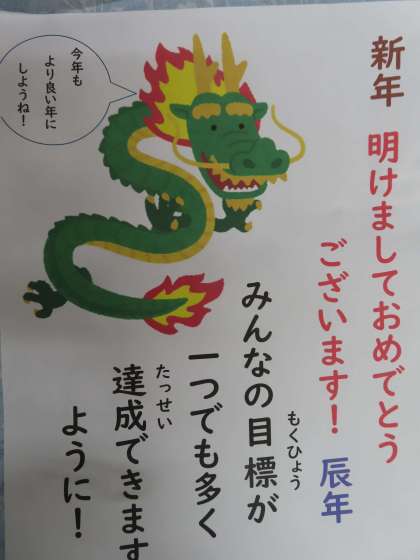 新年 明けましておめでとう
ございます！ 辰年
みんなの目標が
もくひょう
一つでも多く
達成できます
たっせい
ように！
今年も
より良い年に
しようね！